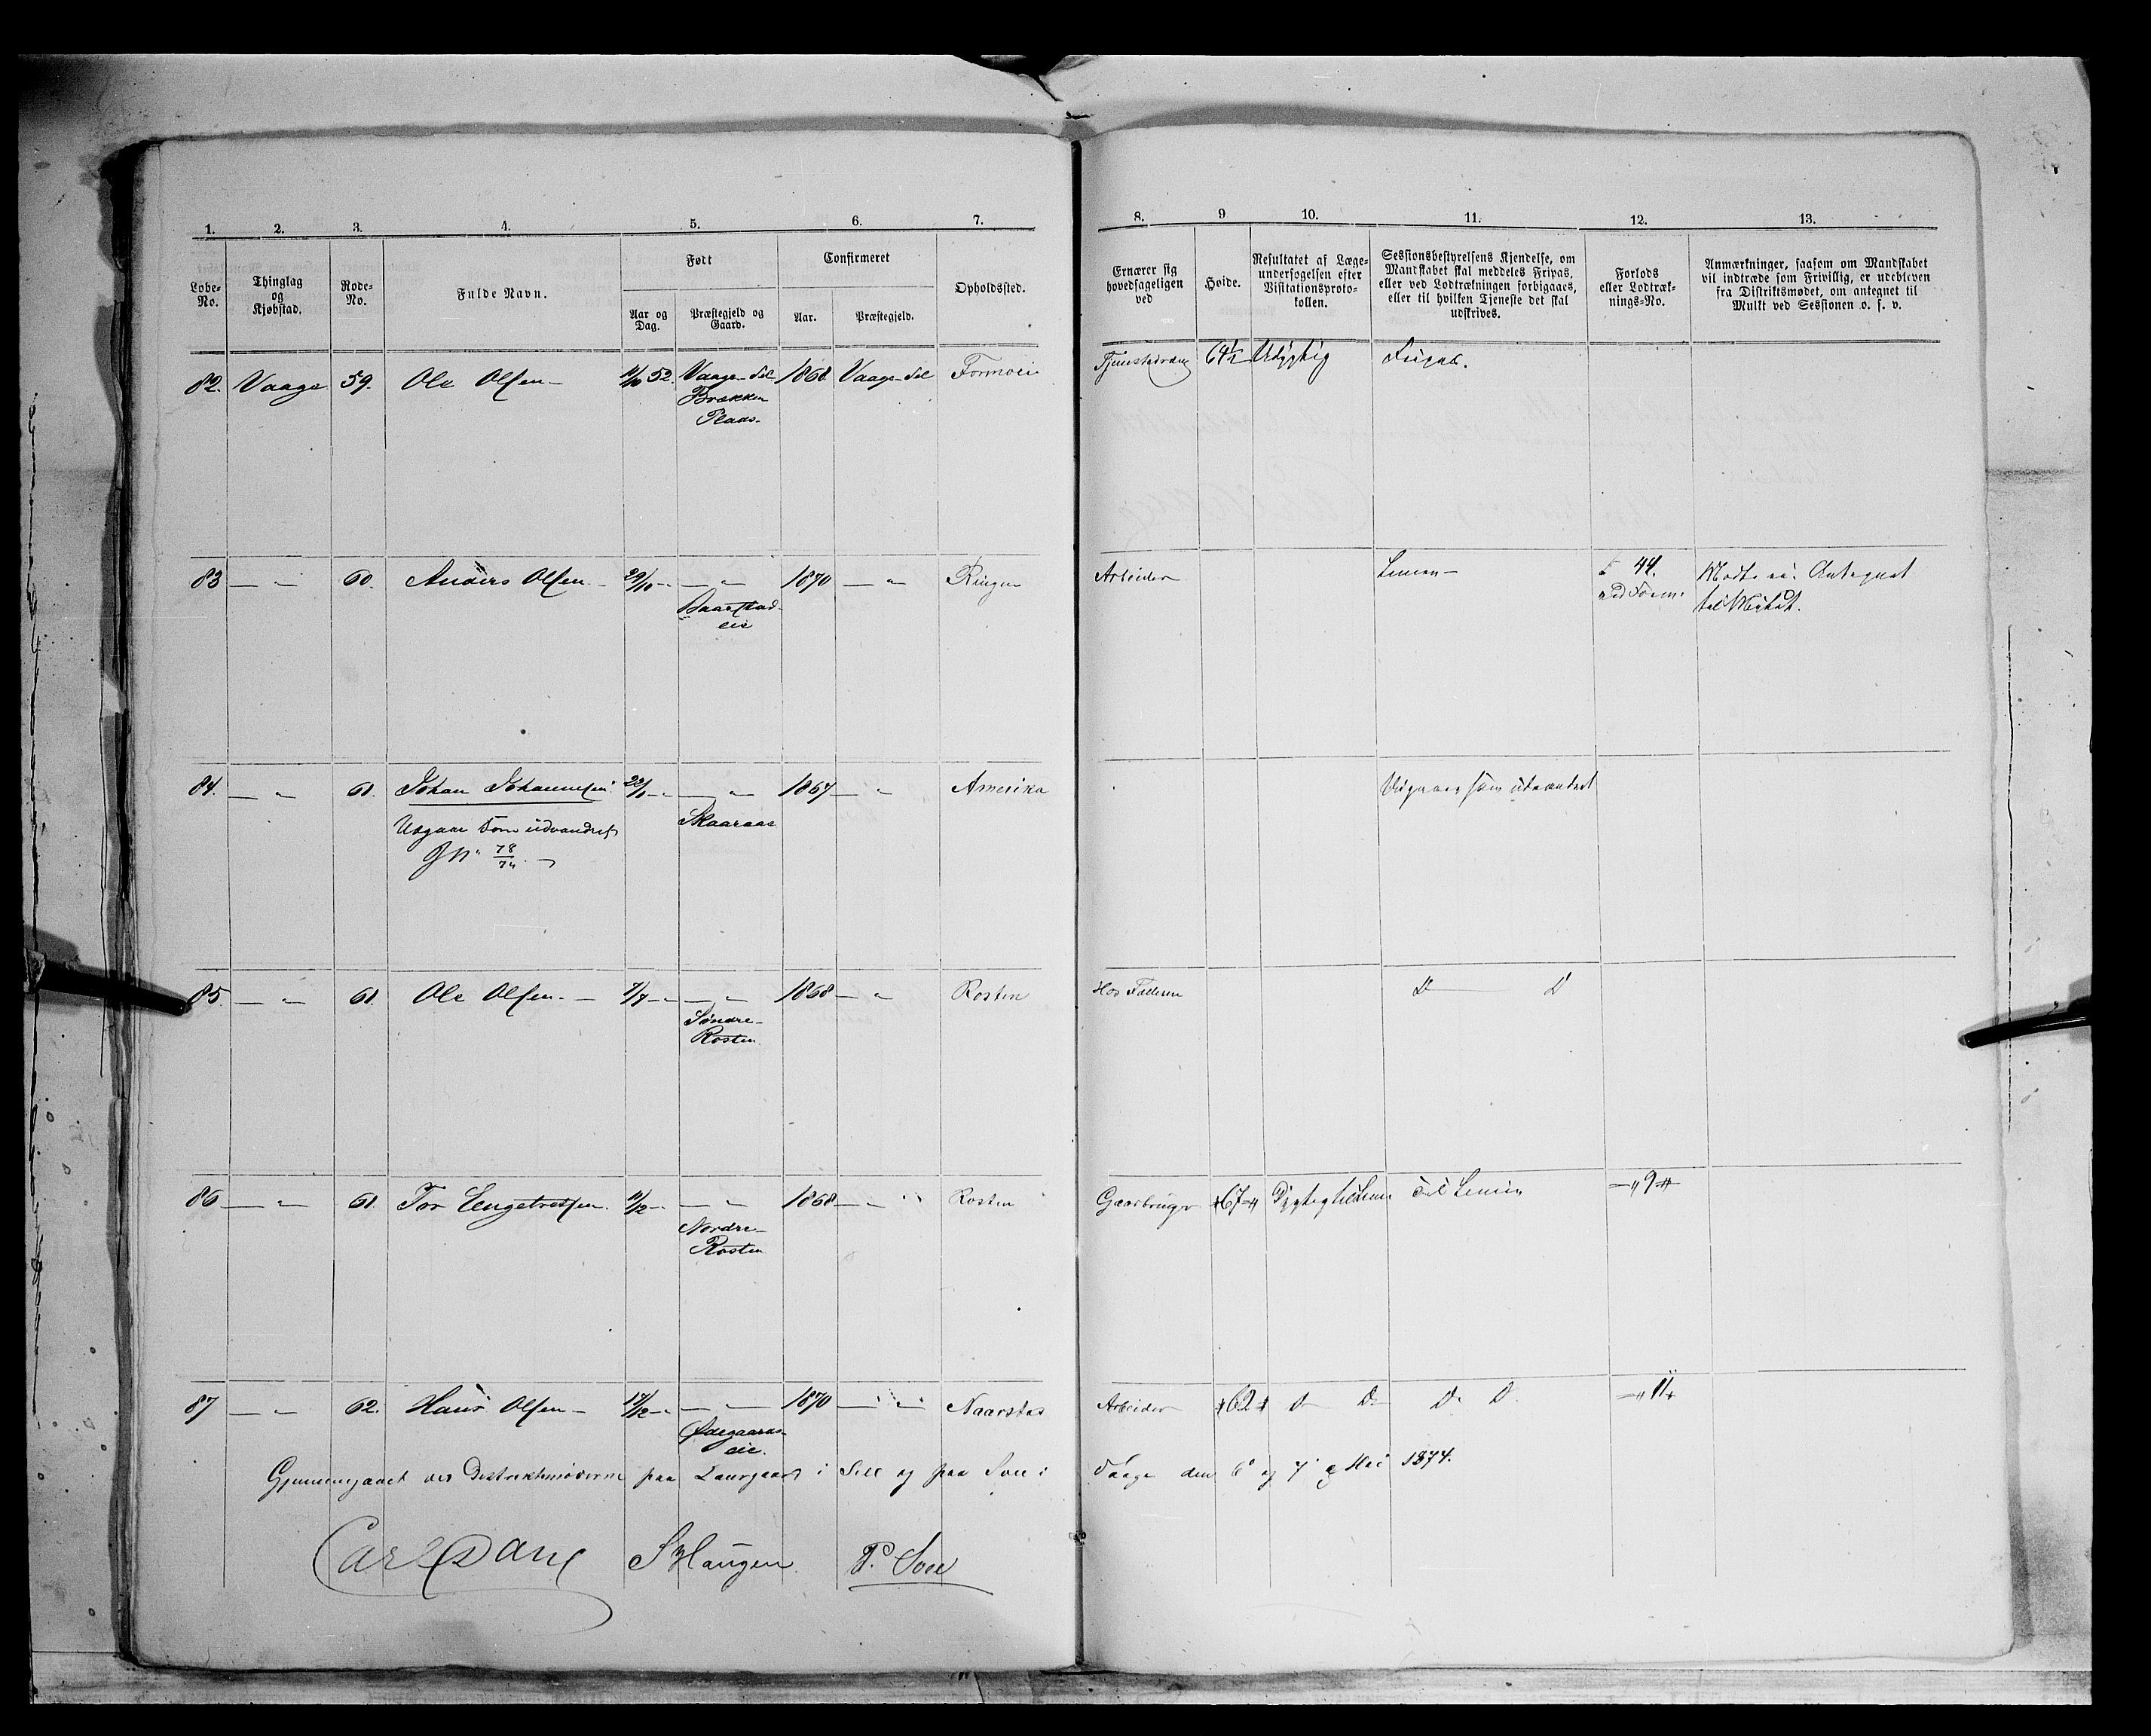 1. 2. 3. 4. 5. 6. 7. 8. 9 10. 11. 12. 13.
Løbe-No. Thinglag og Kjøbstad. Rode-No. Fulde Navn. Født Confirmeret Opholdssted.
Aar og Dag. Præstegjeld og Gaard. Aar. Præstegjeld.
Ernærer sig hovedsageligen ved
Høide.
Resultatet af Læge-undersøgelsen efter Visitationsproto-kollen.
Sessionsbestyrelsens Kjendelse, om Mandskabet skal meddeles Fripas, eller ved Lodtrækningen forbigaaes, eller til hvilken Tjeneste det skal udskrives.
Forlods eller Lodtræk-nings-No.
Anmærkninger, saasom om Mandskabet vil indtræde som Frivillig, er udebleven fra Distriktsmødet, om antegnet til Mulkt ved Sessionen o. s. v.
82. Vaage 59. Ole Olsen — 52. Vaage-Sel 1868 Vaage-Sel Formoei 64½ Udygtig Fripas.
Brækken
Plads.
83 — " — 60. Anders Olsen — 29/10 — " — " 1870 — " Ringen Arbeider Linien — 44.
Baarstad-
eie
84. — " — 61. Johan Johannesen 22/ — " — " 1867 — " Amerika Udgaaer som udvandret
Udgaar som udvandret Skaaraas
JN. 78/74. —
85. — " — 61. Ole Olsen. — 7/7 — " — " 1868 — " Rosten Hos Faderen D D
Søndre-
Rosten
86 — " — 61. Tor Engebretsen. /12 — " — " 1868 — " Rosten Gaardbruger 67 Dygtig til Linien Til Linien — " 9
Nordre-
Rosten
87 — " — 62. Hans Olsen — 17/12 — " — " 1870 — " Naarstad Arbeider 62 D D D D — " 11
Ødegaards-
eie.
Gjennemgaaet ved Distriktsmøderne paa Laurgaard i Sell og paa Svee i Vaage den 6 og 7 Mai 1874.
Carl S Haugen P. Svee